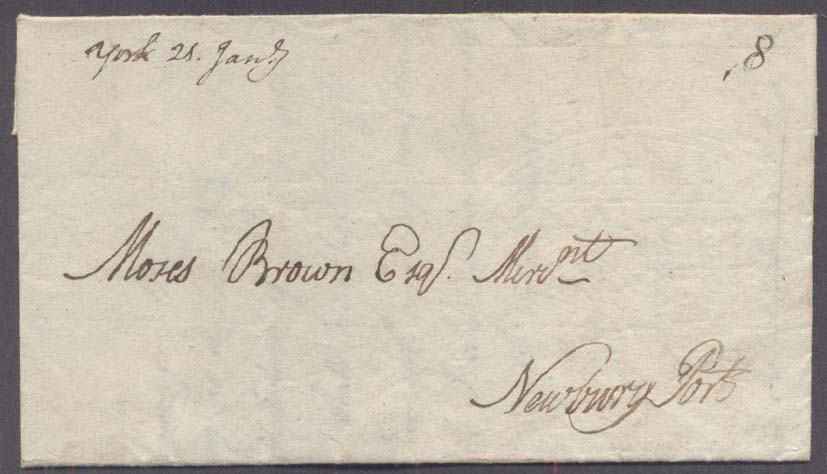 York 21. Jany. 8
Moses Brown Esqr. Merchnt
Newbury Port